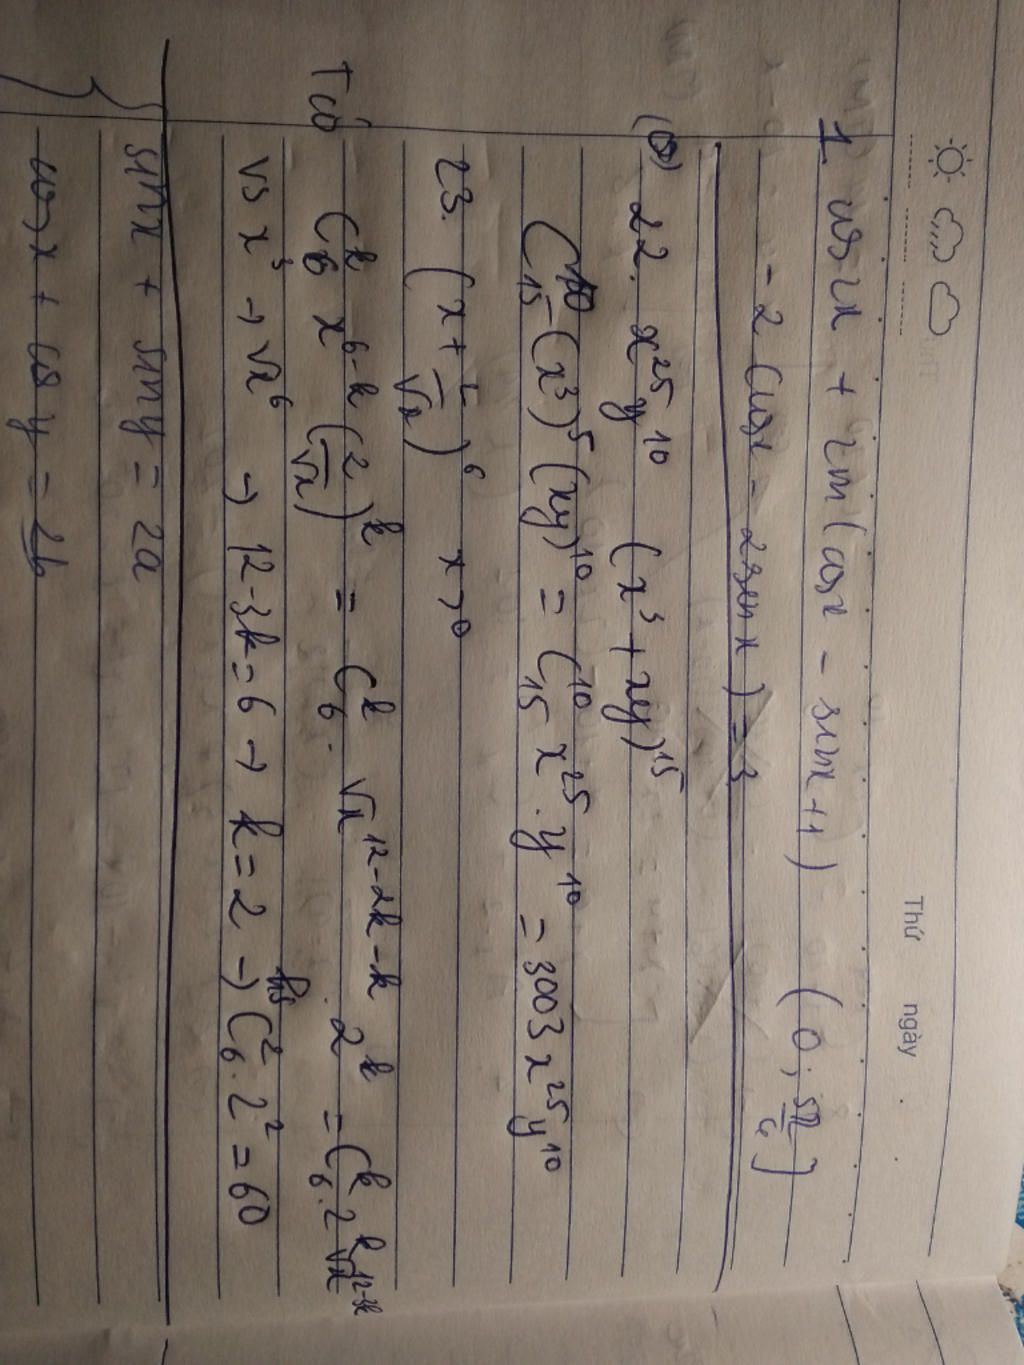 Thứ ngày
1 cos 2x + 2m (cos x - sin x + 1) (0; 5π/6]
- 2 (cos x - 2 sin x) = 3
22. x²⁵ y¹⁰ (x³ + xy)¹⁵
C₁₅¹⁰ (x³)⁵ (xy)¹⁰ = C₁₅¹⁰ x²⁵ . y¹⁰ = 3003 x²⁵ y¹⁰
23. (x + 2/√x)⁶ x > 0
T có C₆ᵏ x⁶⁻ᵏ (2/√x)ᵏ = C₆ᵏ . √x¹²⁻²ᵏ⁻ᵏ . 2ᵏ = C₆ᵏ . 2ᵏ √x¹²⁻³ᵏ
vs x³ → √x⁶ → 12 - 3k = 6 → k = 2 → hs C₆² . 2² = 60
sin x + sin y = 2a
cos x + cos y = 2b